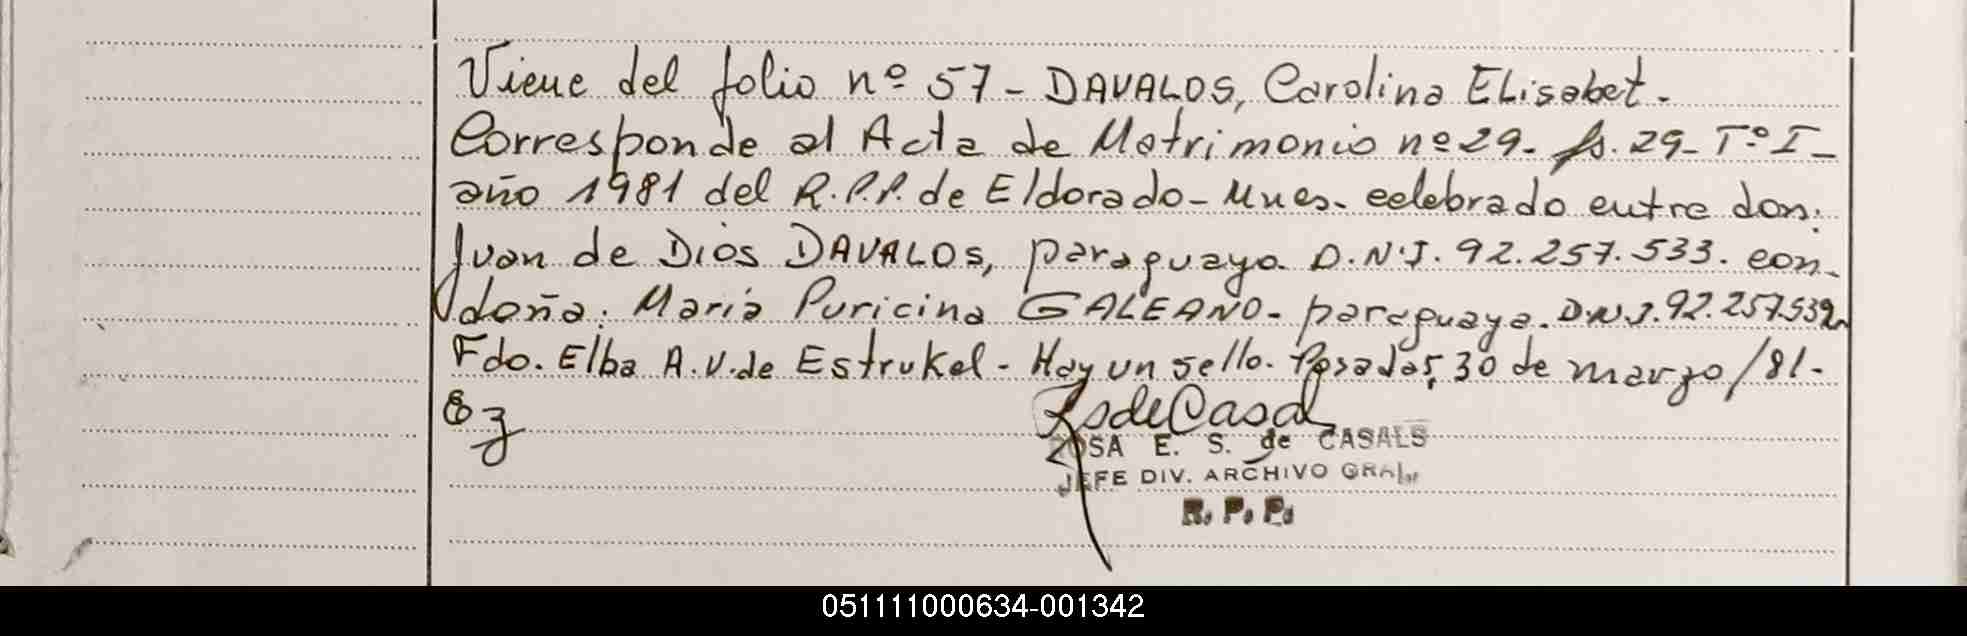 Viene del folio nº 57 - DAVALOS, Carolina Elisabet.
Corresponde al Acta de Matrimonio nº 29. fs. 29- Tº I-
año 1981 del R.P.P. de Eldorado- Mnes. celebrado entre don:
Juan de Dios DAVALOS, paraguayo. D.N.I. 92.257.533. con.
doña: María Puricina GALEANO- paraguaya. D.N.I. 92.257.532
Fdo. Elba A.V. de Estrukel - Hay un sello. Posadas, 30 de marzo/81-
ROSA E. S. de CASALS
JEFE DIV. ARCHIVO GRAL.
R. P. P.
051111000634-001342